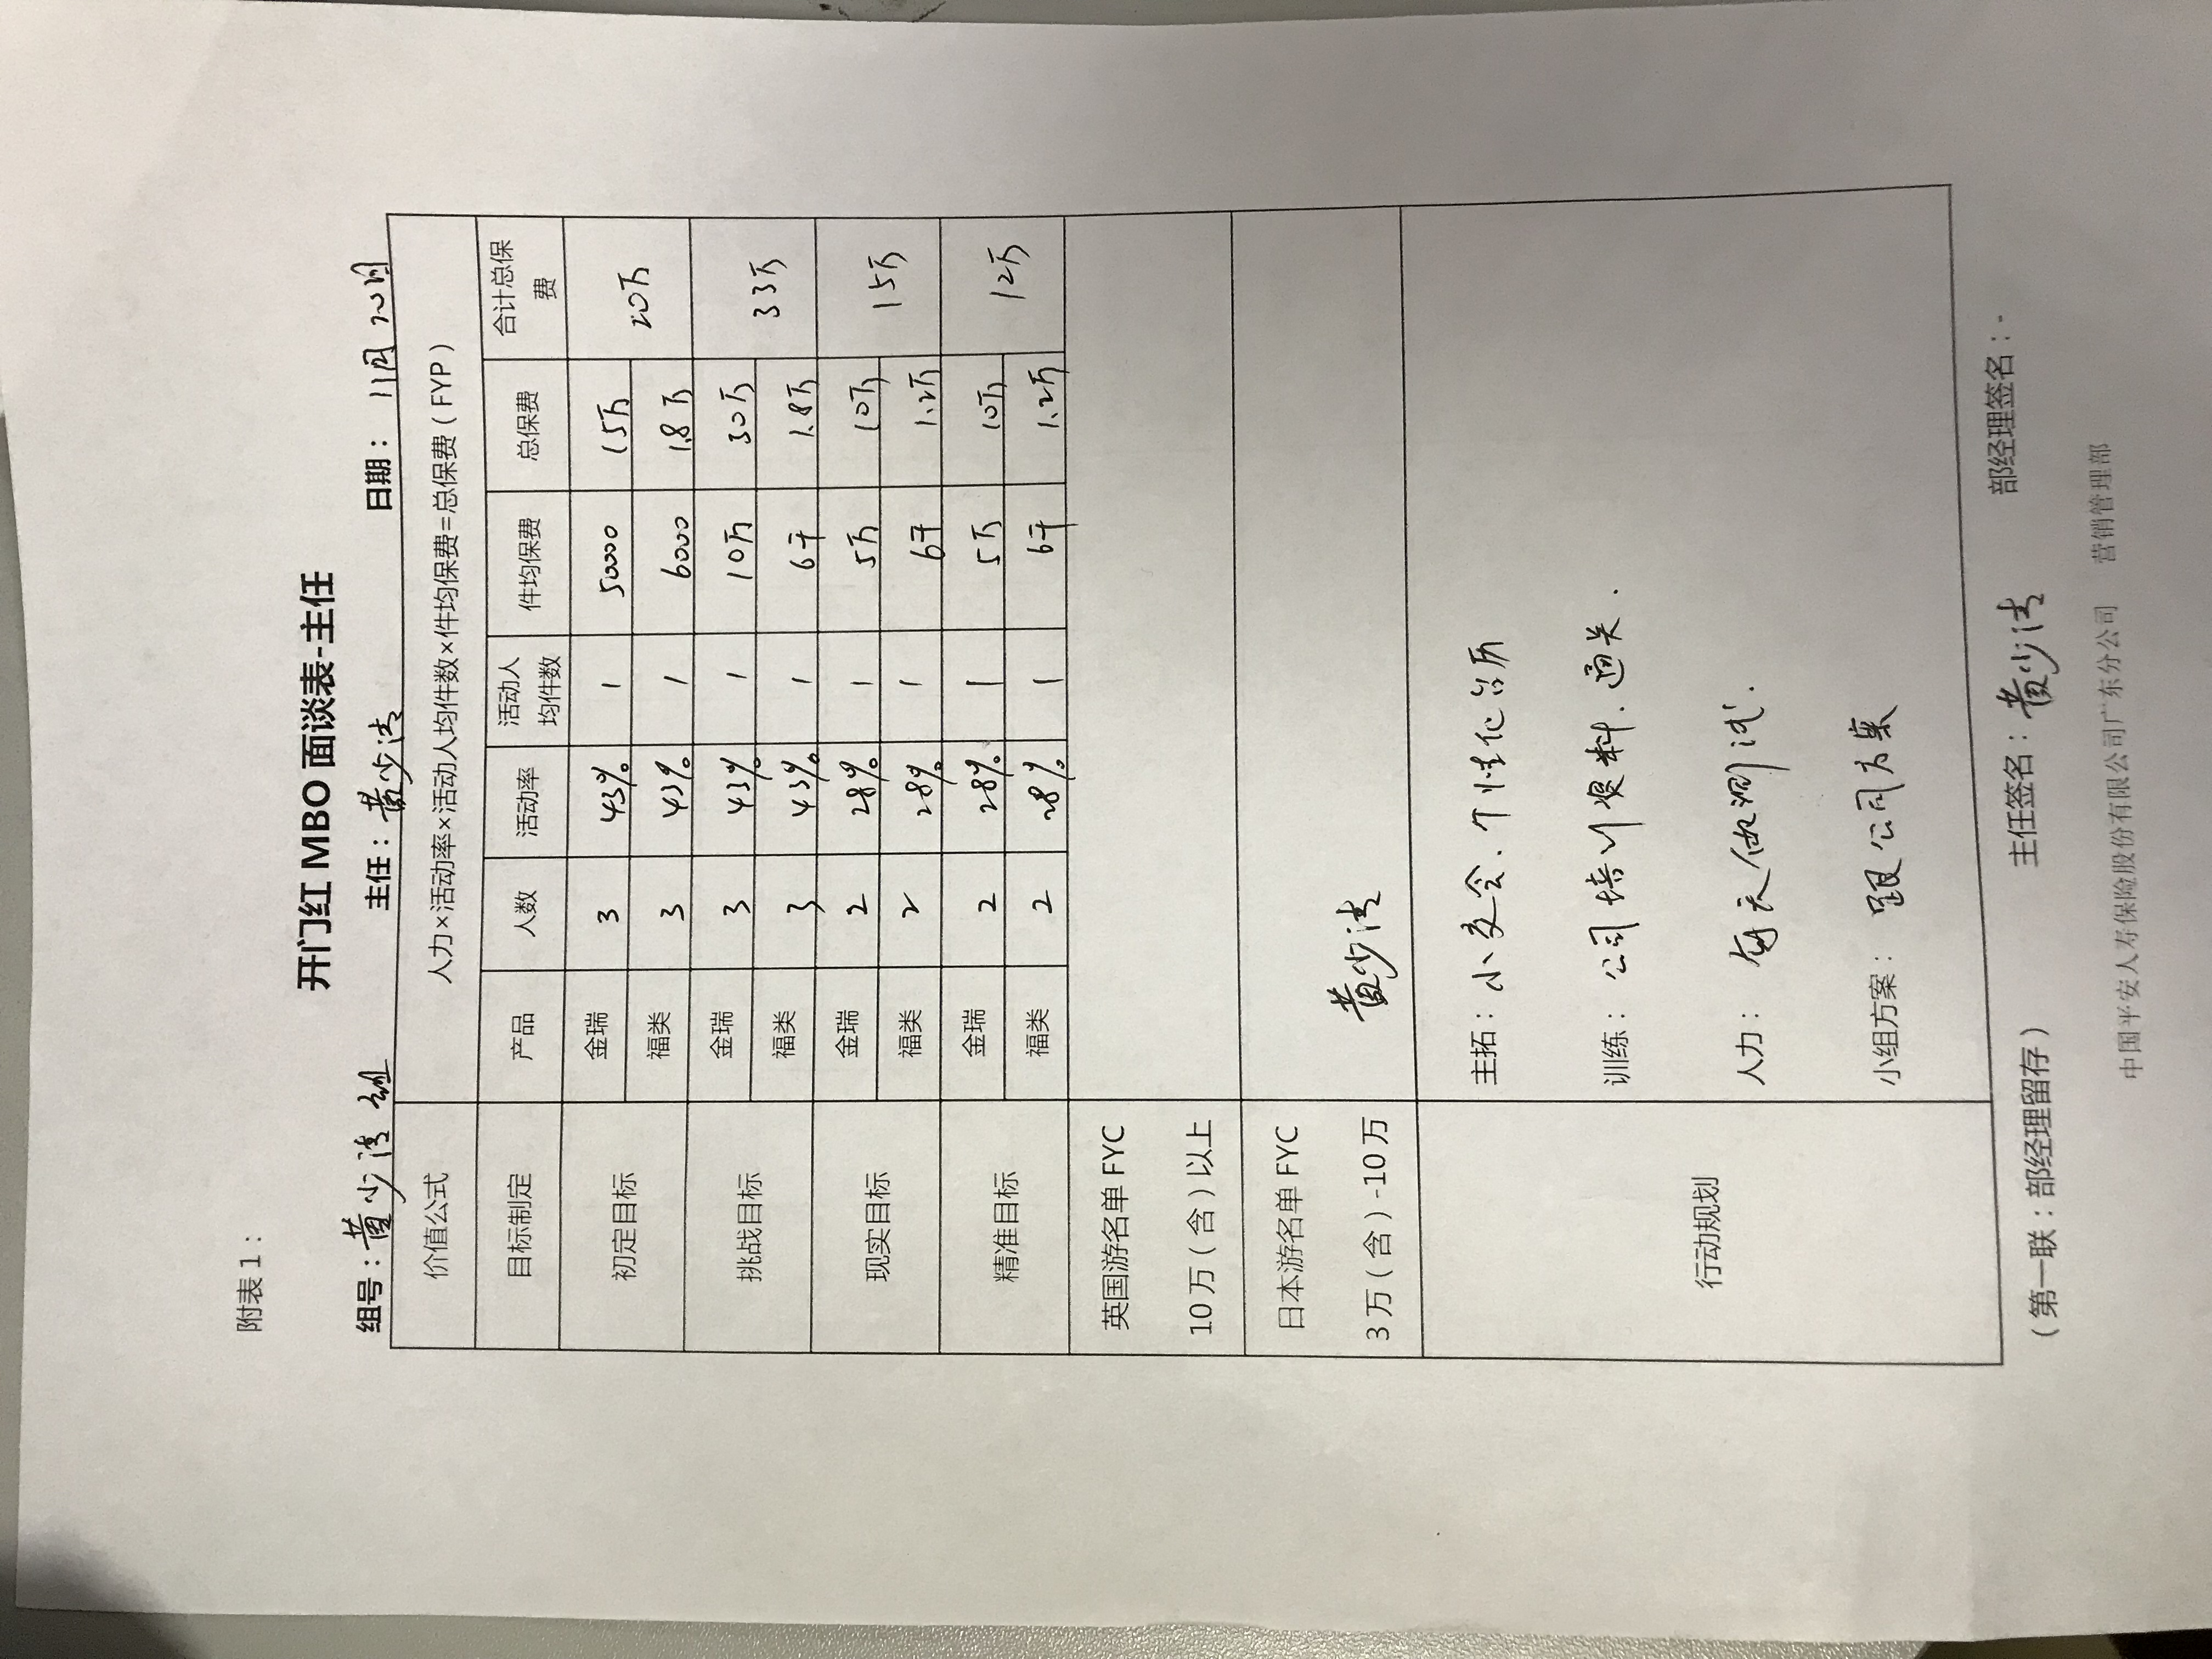 附表1：
开门红 MBO 面谈表-主任
组号：黄少洁 组 主任：黄少洁 日期：11月20日
价值公式 人力×活动率×活动人均件数×件均保费=总保费（FYP）
目标制定 产品 人数 活动率 活动人均件数 件均保费 总保费 合计总保费
初定目标 金瑞 3 43% 1 50000 15万 20万
福类 3 43% 1 6000 1.8万
挑战目标 金瑞 3 43% 1 10万 30万 33万
福类 3 43% 1 6千 1.8万
现实目标 金瑞 2 28% 1 5万 10万 15万
福类 2 28% 1 6千 1.2万
精准目标 金瑞 2 28% 1 5万 10万 12万
福类 2 28% 1 6千 1.2万
英国游名单 FYC
10万（含）以上
日本游名单 FYC
3万（含）-10万 黄少洁
行动规划
主拓：小交会、个性化台历
训练：公司培训资料.通关.
人力：每天做测试.
小组方案：跟公司方案
（第一联：部经理留存） 主任签名：黄少洁 部经理签名：
中国平安人寿保险股份有限公司广东分公司 营销管理部